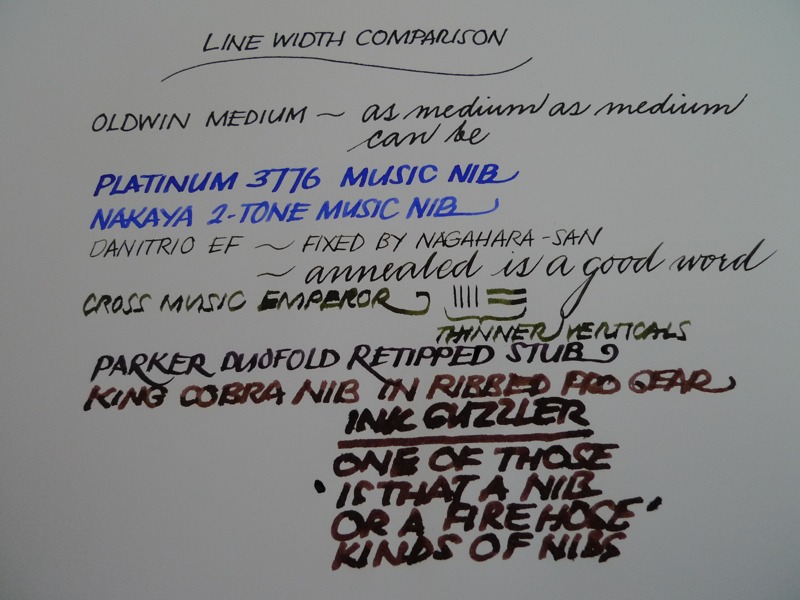 LINE WIDTH COMPARISON
OLDWIN MEDIUM ~ as medium as medium
can be
PLATINUM 3776 MUSIC NIB
NAKAYA 2-TONE MUSIC NIB
DANITRIO EF ~ FIXED BY NAGAHARA-SAN
~ annealed is a good word
CROSS MUSIC EMPEROR
THINNER VERTICALS
PARKER DUOFOLD RETIPPED STUB
KING COBRA NIB IN RIBBED PRO GEAR
INK GUZZLER
ONE OF THOSE
'IS THAT A NIB
OR A FIREHOSE'
KINDS OF NIBS